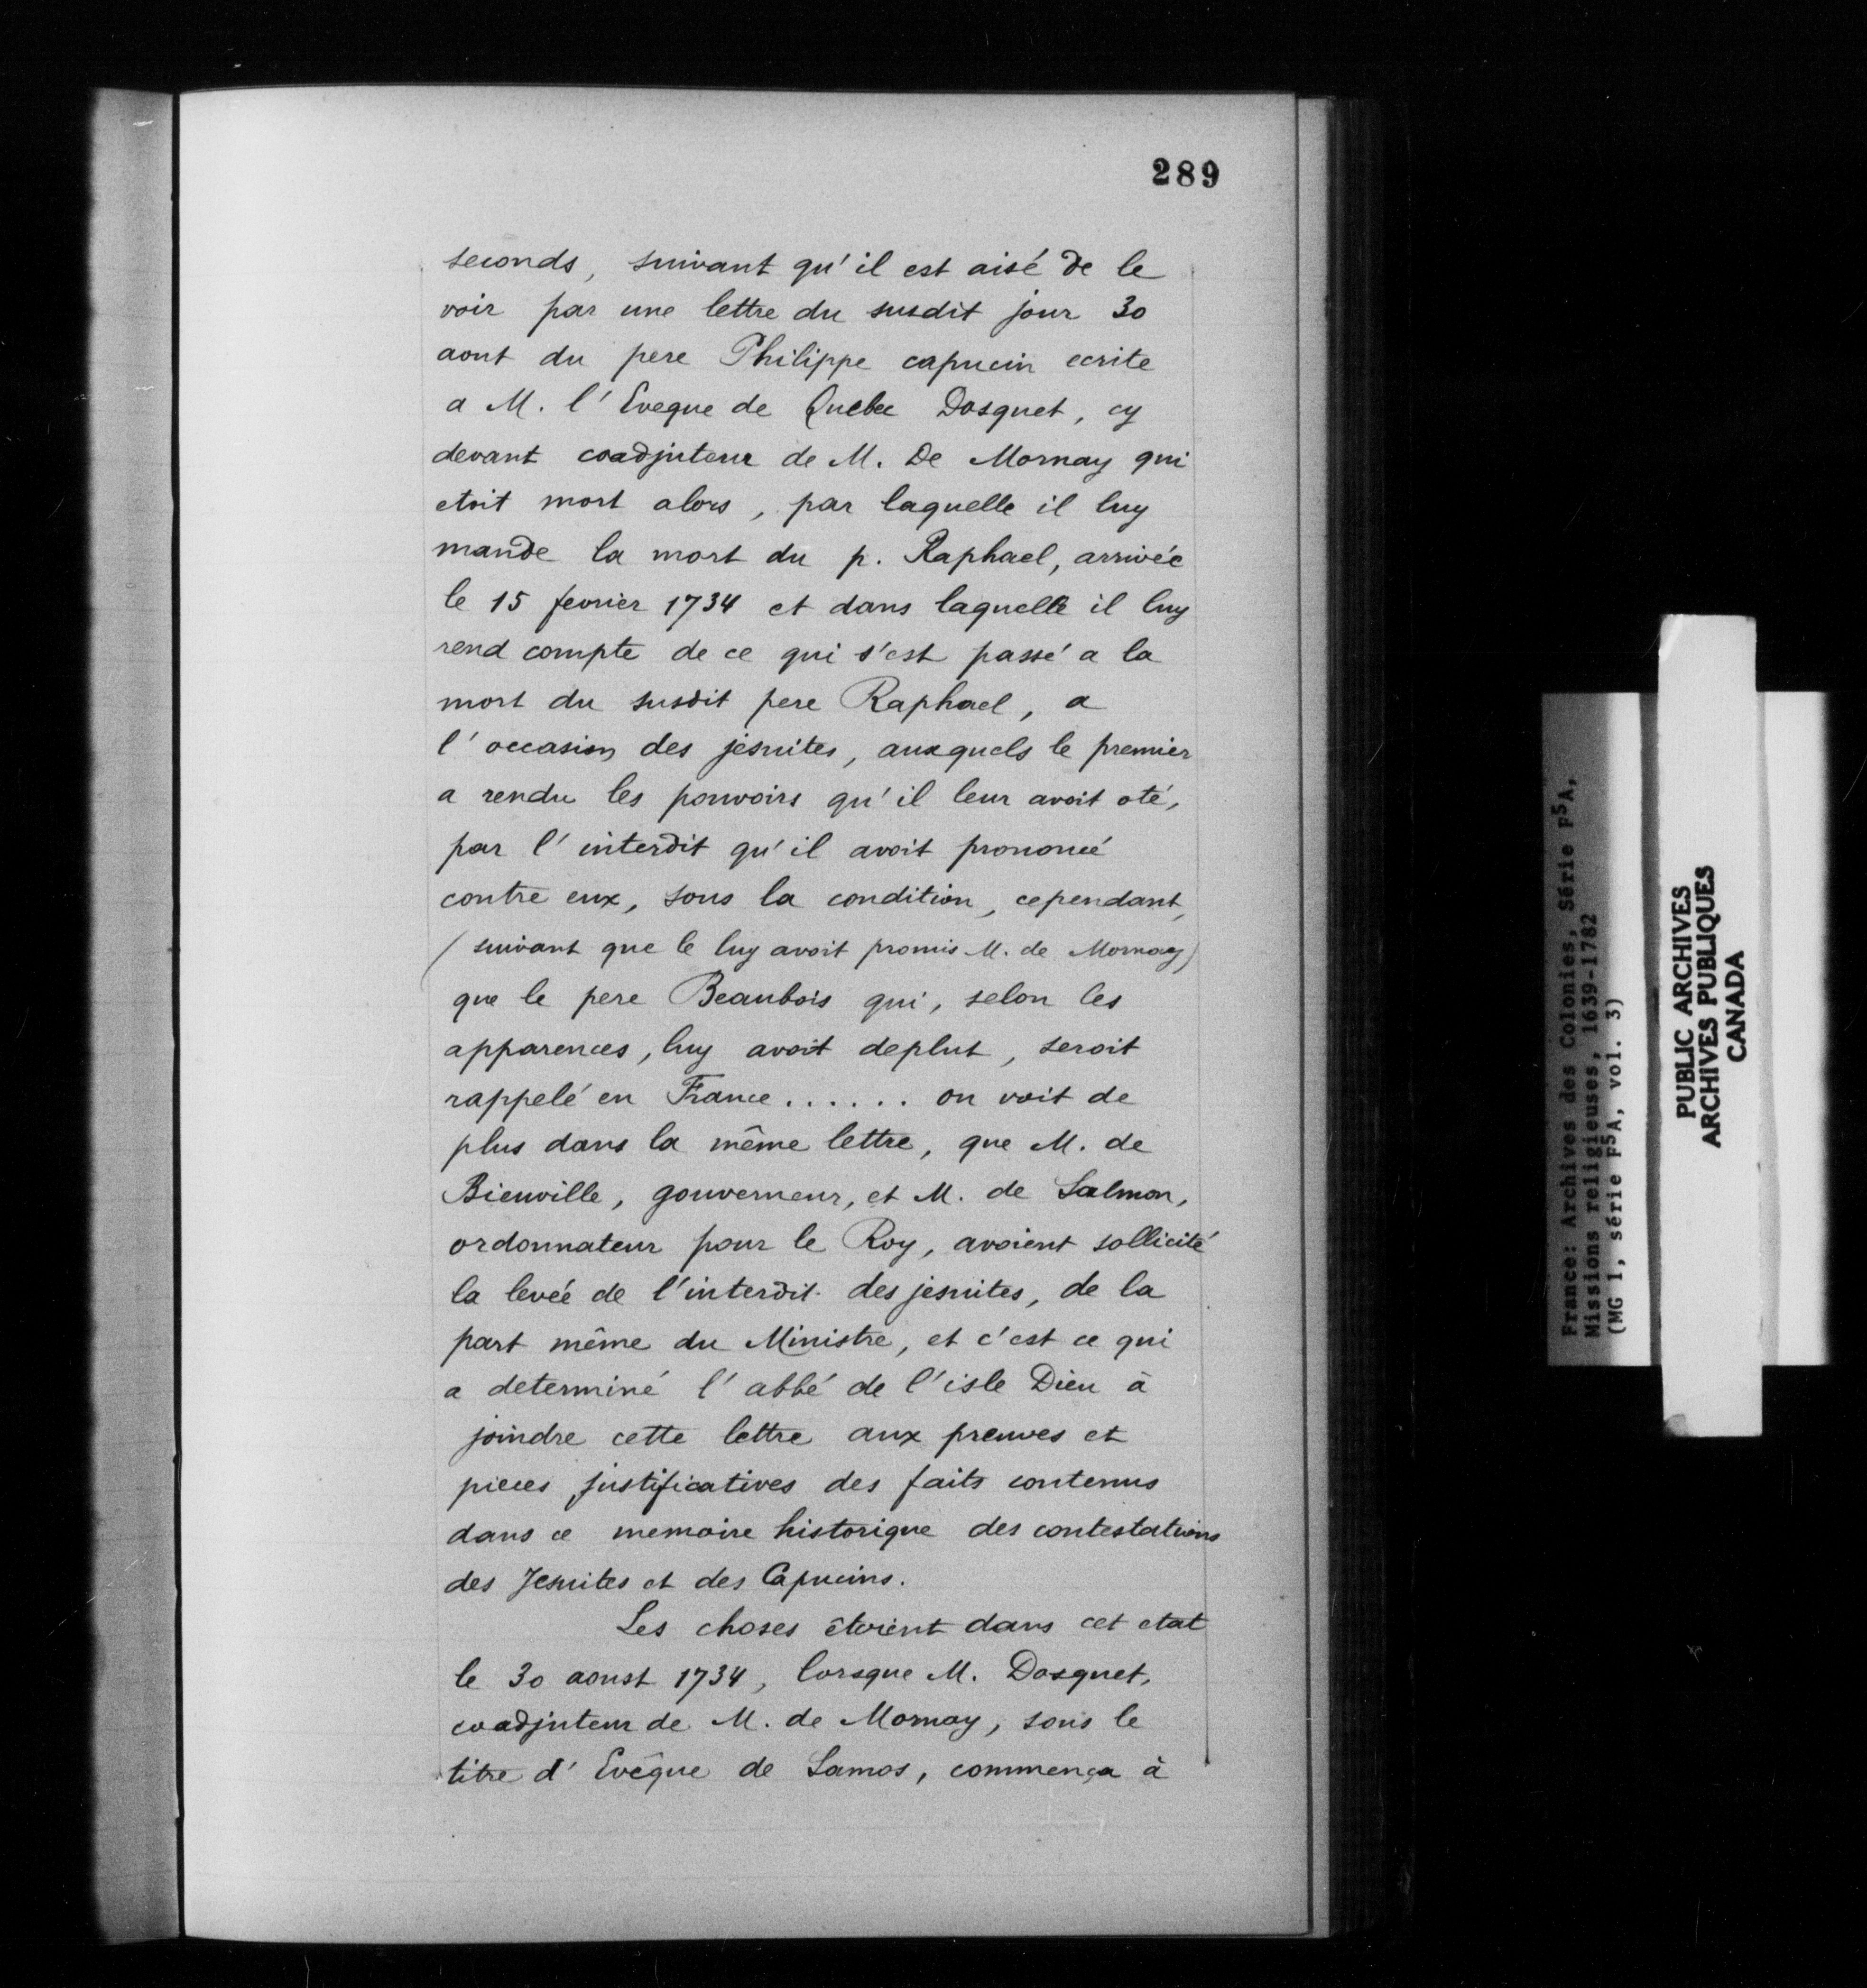 289
seconds, suivant qu'il est aisé de le
voir par une lettre du susdit jour 30
aout du pere Philippe capucin ecrite
a M. l'Eveque de Quebec Dosquet, cy
devant coadjuteur de M. De Mornay qui
etoit mort alors, par laquelle il luy
mande la mort du p. Raphael, arrivée
le 15 fevrier 1734 et dans laquelle il luy
rend compte de ce qui s'est passé a la
mort du susdit pere Raphael, a
l'occasion des jesuites, auxquels le premier
a rendu les pouvoirs qu'il leur avoit oté,
par l'interdit qu'il avoit prononcé
contre eux, sous la condition, cependant,
(suivant que le luy avoit promis M. de Mornay)
que le pere Beaubois qui, selon les
apparences, luy avoit deplut, seroit
rappelé en France...... on voit de
plus dans la même lettre, que M. de
Bienville, gouverneur, et M. de Salmon,
ordonnateur pour le Roy, avoient sollicité
la levée de l'interdit des jesuites, de la
part même du Ministre, et c'est ce qui
a determiné l'abbé de l'isle Dieu à
joindre cette lettre aux preuves et
pieces justificatives des faits contenus
dans ce memoire historique des contestations
des Jesuites et des Capucins.
Les choses êtoient dans cet etat
le 30 aoust 1734, lorsque M. Dosquet,
coadjuteur de M. de Mornay, sous le
titre d'Evêque de Samos, commença à
France: Archives des Colonies, Série F5A,
Missions religieuses, 1639-1782
(MG 1, série F5A, vol. 3)
PUBLIC ARCHIVES
ARCHIVES PUBLIQUES
CANADA